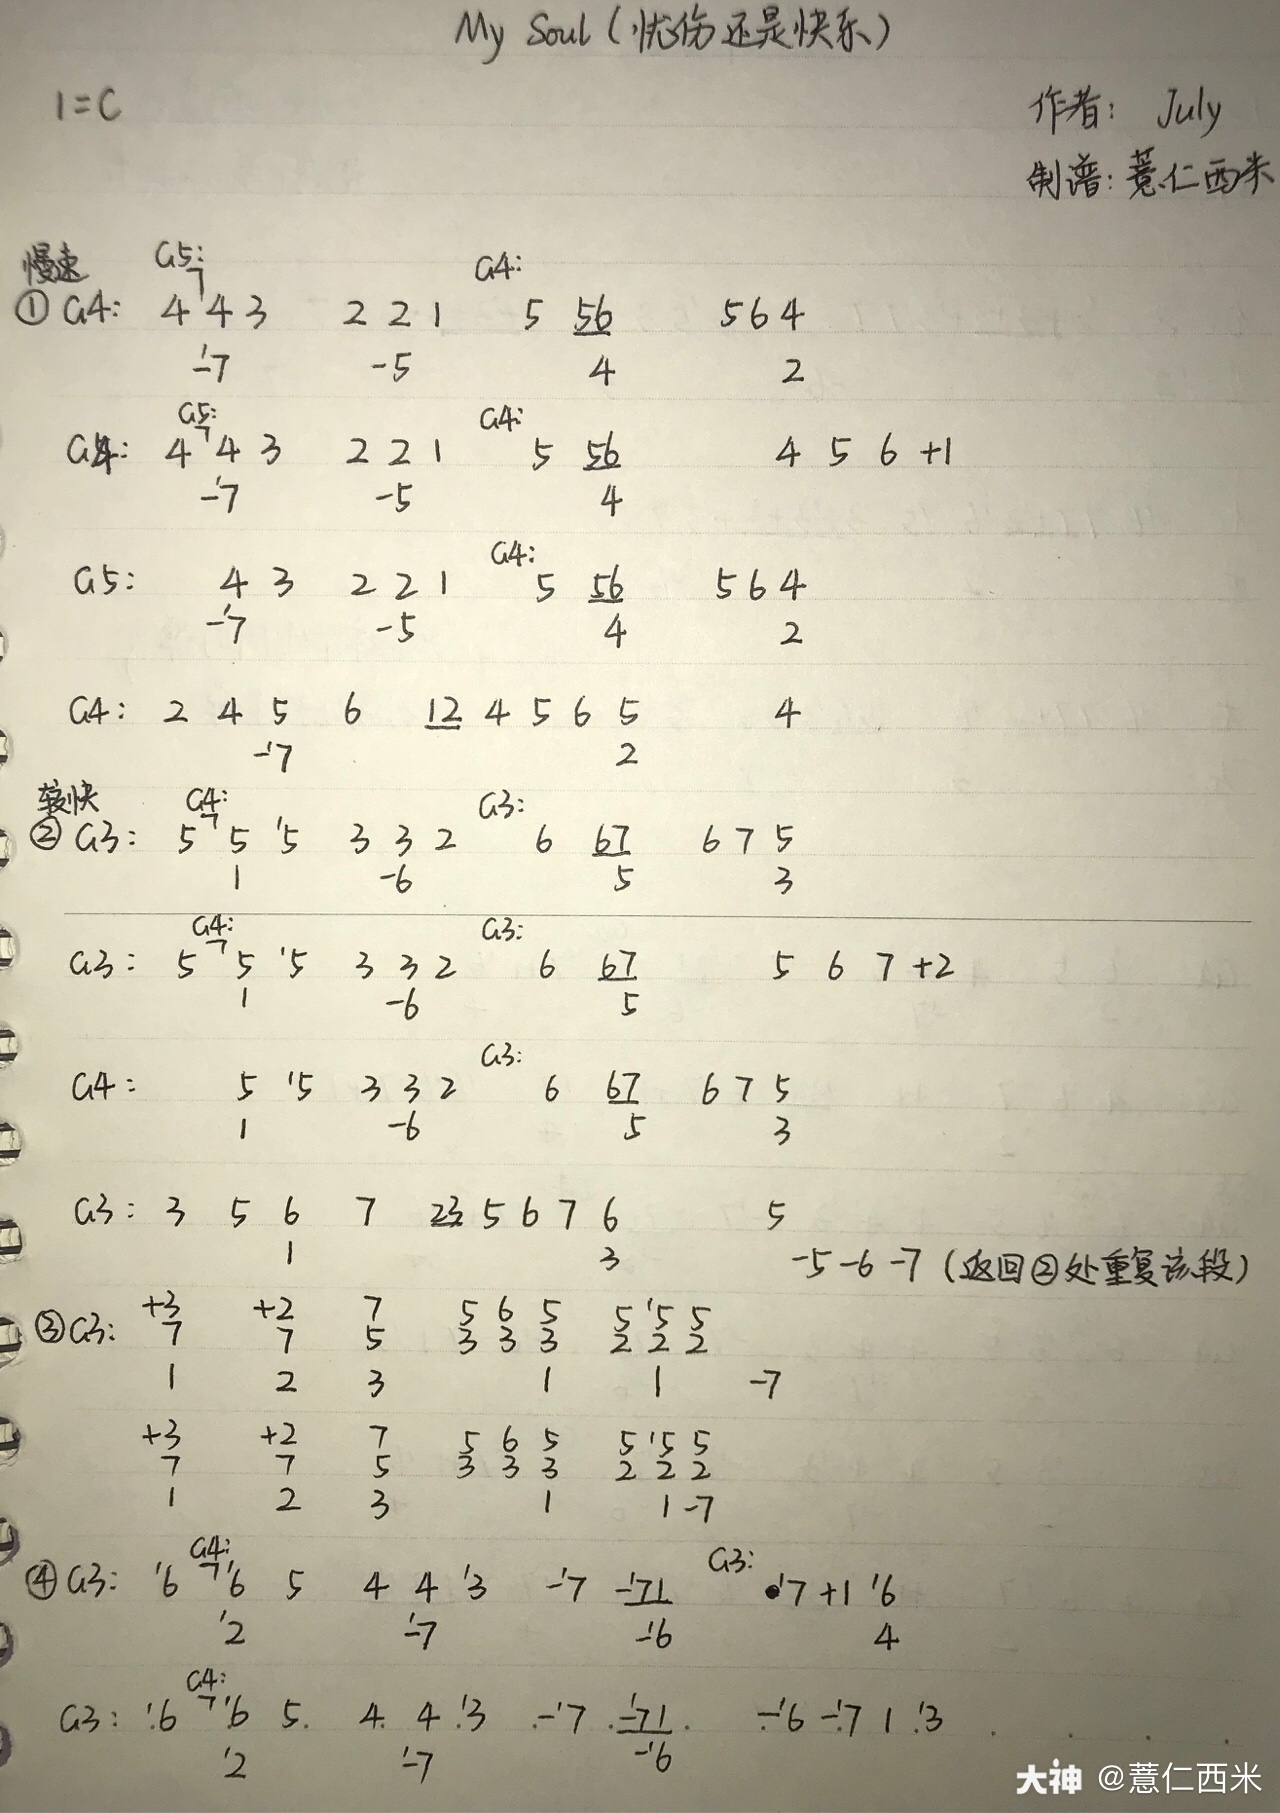 My Soul (忧伤还是快乐)
1=C
作者: July
制谱: 薏仁西米
慢速 G5: G4:
① G4: 4 7 4 3 2 2 1 5 56 5 6 4
-'7 -5 4 2
G5: G4:
G4: 4 7 4 3 2 2 1 5 56 4 5 6 +1
-'7 -5 4
G4:
G5: 4 3 2 2 1 5 56 5 6 4
-'7 -5 4 2
G4: 2 4 5 6 12 4 5 6 5 4
-'7 2
较快 G4: G3:
② G3: 5 7 5 '5 3 3 2 6 67 6 7 5
1 -6 5 3
G4: G3:
G3: 5 7 5 '5 3 3 2 6 67 5 6 7 +2
1 -6 5
G3:
G4: 5 '5 3 3 2 6 67 6 7 5
1 -6 5 3
G3: 3 5 6 7 23 5 6 7 6 5
1 3 -5 -6 -7 (返回②处重复该段)
+3 +2 7 5 6 5 5 '5 5
③ G3: 7 7 5 3 3 3 2 2 2
1 2 3 1 1 -7
+3 +2 7 5 6 5 5 '5 5
7 7 5 3 3 3 2 2 2
1 2 3 1 1 -7
G4: G3:
④ G3: '6 7 '6 5 4 4 '3 -'7 -'71 '7 +1 '6
'2 -'7 -'6 4
G4:
G3: '6 7 '6 5 4 4 '3 -'7 -'71 -'6 -'7 1 '3
'2 -'7 -'6
大神 @薏仁西米